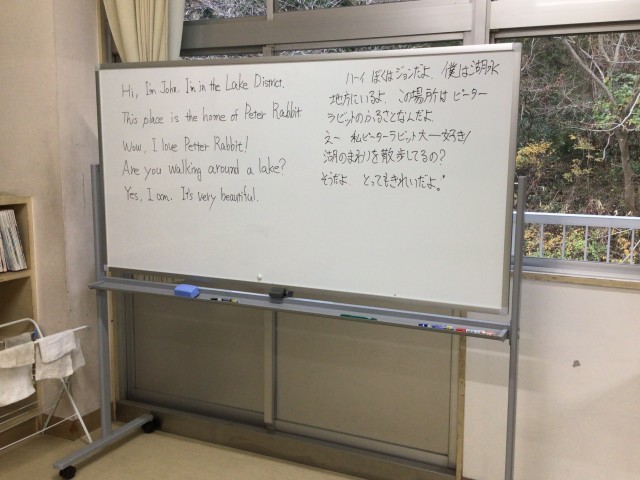 Hi, I'm John. I'm in the Lake District.
This place is the home of Peter Rabbit
Wow, I love Petter Rabbit!
Are you walking around a lake?
Yes, I am. It's very beautiful.
ハーイ ぼくはジョンだよ。僕は湖水
地方にいるよ。この場所は ピーター
ラビットのふるさとなんだよ
えー 私ピーターラビット大一好き!
湖のまわりを散歩してるの?
そうだよ とってもきれいだよ。